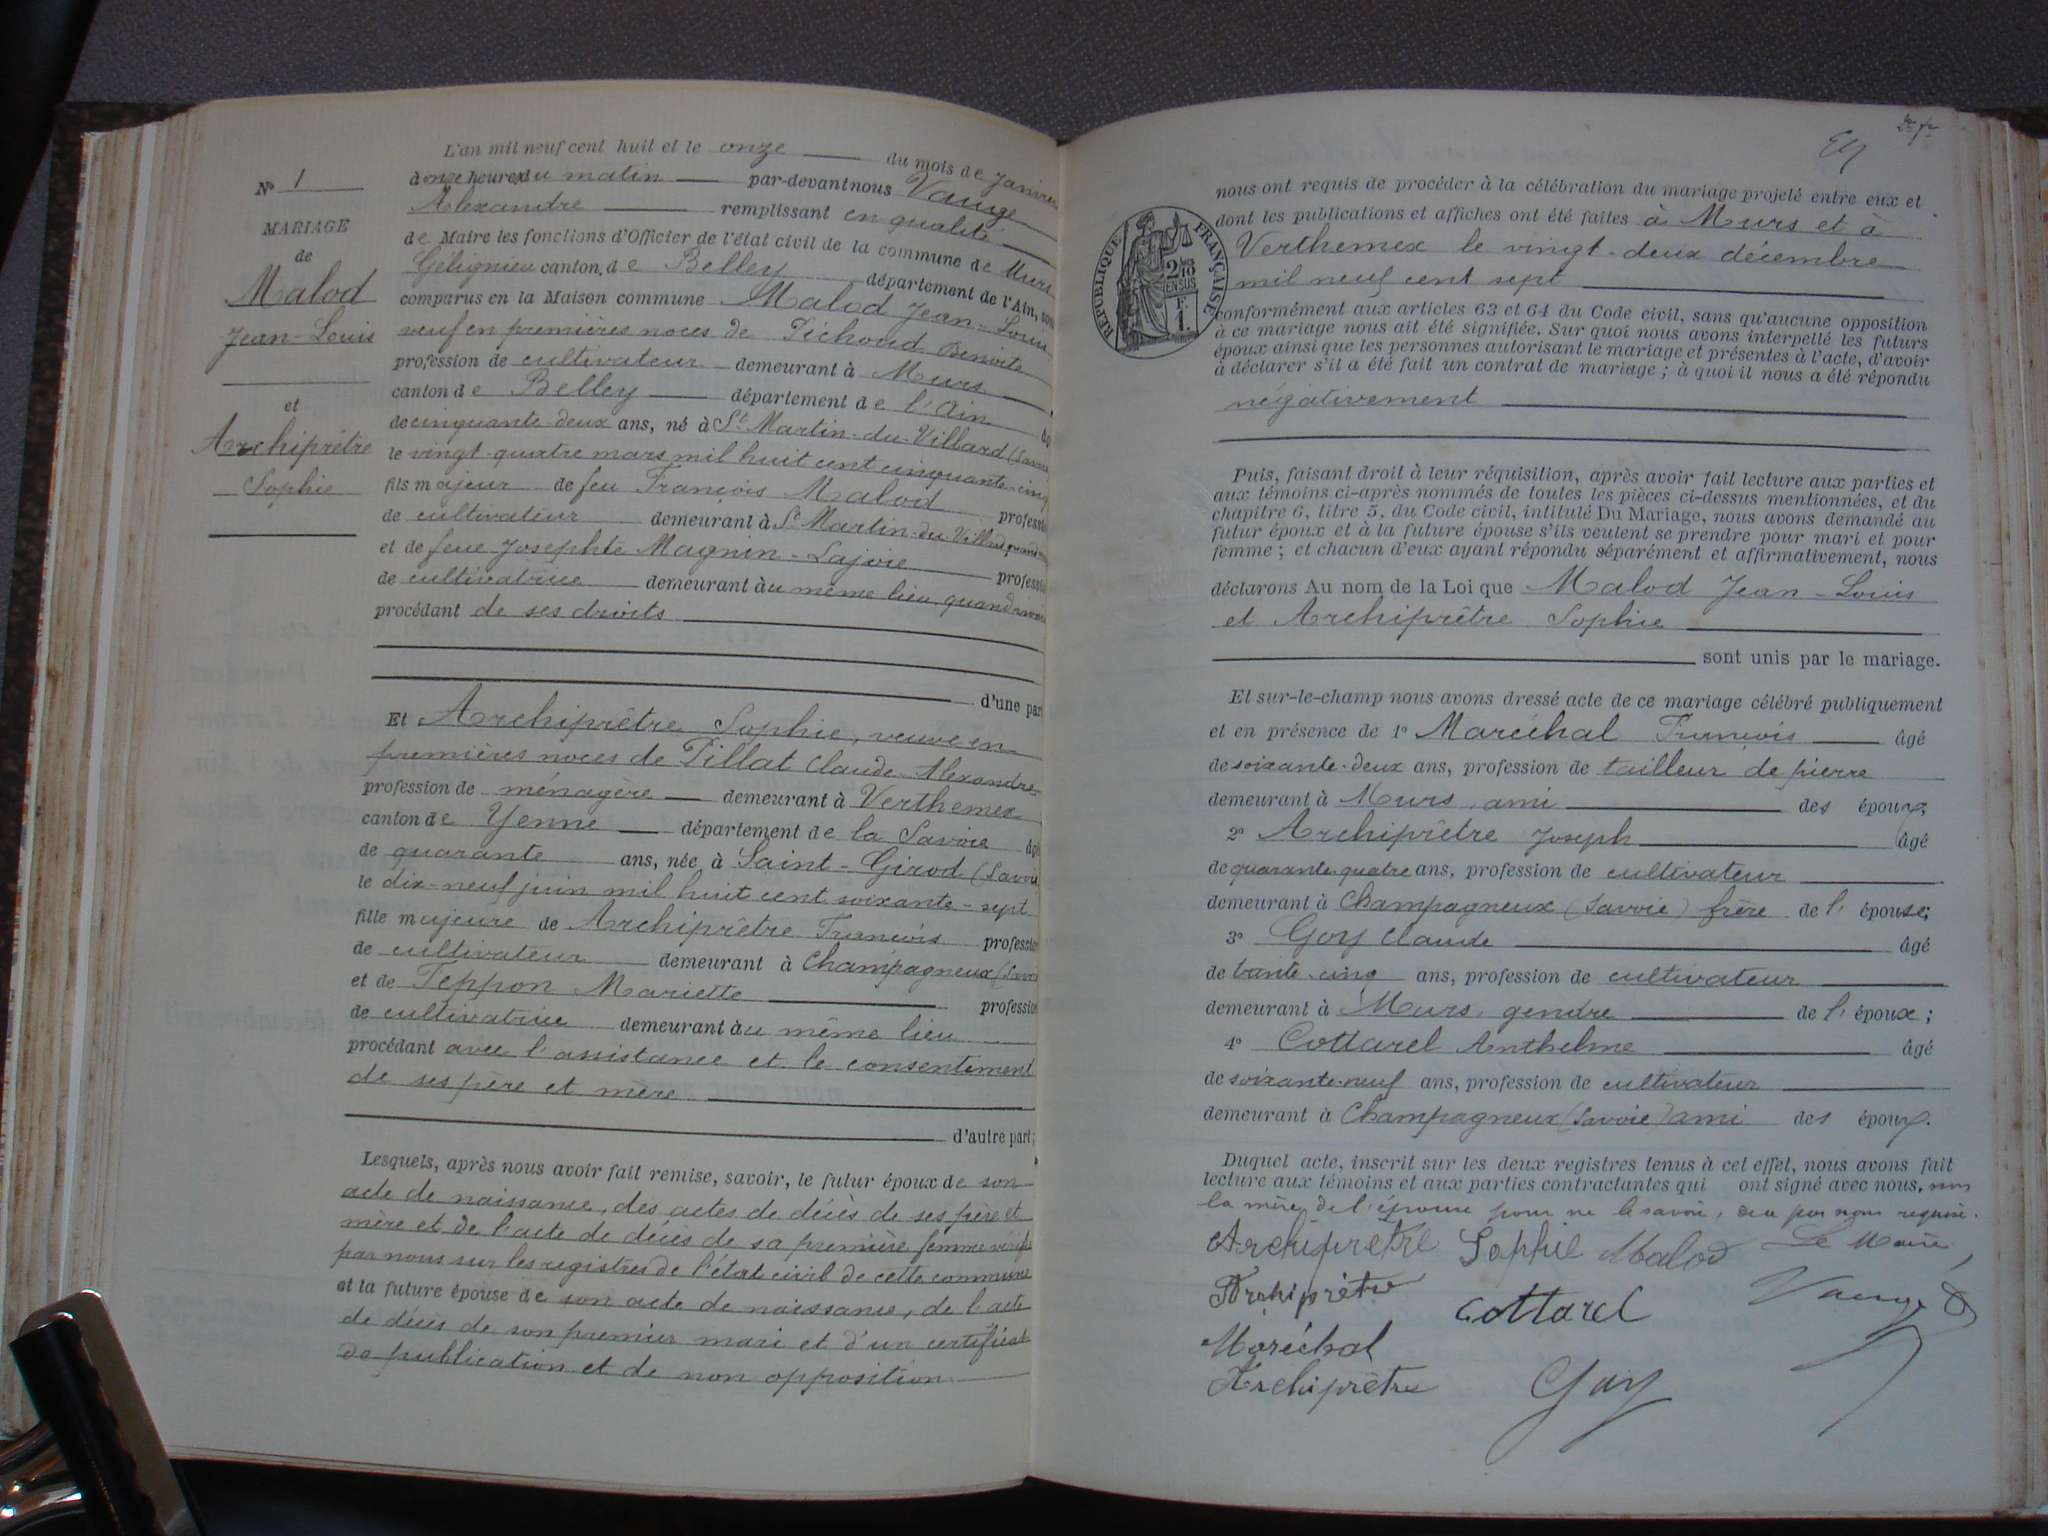 N° 1
MARIAGE
de
Malod
Jean-Louis
et
Archiprêtre
Sophie
L'an mil neuf cent huit et le onze du mois de Janvier
à onze heures du matin par-devant nous Vauge
Alexandre remplissant en qualité
de Maire les fonctions d'Officier de l'état civil de la commune de Murs
Gélignieu canton de Belley département de l'Ain, sont
comparus en la Maison commune Malod Jean-Louis
veuf en premières noces de Pichoud Benoite
profession de cultivateur demeurant à Murs
canton de Belley département de l'Ain
de cinquante-deux ans, né à St. Martin-du-Villard (Savoie
le vingt-quatre mars mil huit cent cinquante-cinq
fils majeur de feu François Malod profession
de cultivateur demeurant à St Martin-du-Villard, quand
et de feue Josephte Magnin-Lajoie profession
de cultivatrice demeurant au même lieu, quand vivait
procédant de ses droits
d'une part
Et Archiprêtre Sophie, veuve en
premières noces de Pillat Claude-Alexandre
profession de ménagère demeurant à Verthemex
canton de Yenne département de la Savoie âgée
de quarante ans, née à Saint-Girod (Savoie
le dix-neuf juin mil huit cent soixante-sept
fille majeure de Archiprêtre François profession
de cultivateur demeurant à Champagneux (Savoie
et de Teppon Mariette profession
de cultivatrice demeurant au même lieu
procédant avec l'assistance et le consentement
de ses père et mère
d'autre part;
Lesquels, après nous avoir fait remise, savoir, le futur époux de son
acte de naissance, des actes de décès de ses père et
mère et de l'acte de décès de sa première femme vérifié
par nous sur les registres de l'état civil de cette commune
et la future épouse de son acte de naissance, de l'acte
de décès de son premier mari et d'un certificat
de publication et de non opposition
nous ont requis de procéder à la célébration du mariage projeté entre eux et
dont les publications et affiches ont été faites à Murs et à
Verthemex le vingt-deux décembre
mil neuf cent sept
RÉPUBLIQUE FRANÇAISE
2/10
EN SUS
F.
1.
conformément aux articles 63 et 64 du Code civil, sans qu'aucune opposition
à ce mariage nous ait été signifiée. Sur quoi nous avons interpellé les futurs
époux ainsi que les personnes autorisant le mariage et présentes à l'acte, d'avoir
à déclarer s'il a été fait un contrat de mariage; à quoi il nous a été répondu
négativement
Puis, faisant droit à leur réquisition, après avoir fait lecture aux parties et
aux témoins ci-après nommés de toutes les pièces ci-dessus mentionnées, et du
chapitre 6, titre 5, du Code civil, intitulé Du Mariage, nous avons demandé au
futur époux et à la future épouse s'ils veulent se prendre pour mari et pour
femme; et chacun d'eux ayant répondu séparément et affirmativement, nous
déclarons Au nom de la Loi que Malod Jean-Louis
et Archiprêtre Sophie
sont unis par le mariage.
Et sur-le-champ nous avons dressé acte de ce mariage célébré publiquement
et en présence de 1° Maréchal François âgé
de soixante-deux ans, profession de tailleur de pierre
demeurant à Murs, ami des époux;
2° Archiprêtre Joseph âgé
de quarante-quatre ans, profession de cultivateur
demeurant à Champagneux (Savoie) frère de l'épouse;
3° Goy Claude âgé
de trente-cinq ans, profession de cultivateur
demeurant à Murs, gendre de l'époux;
4° Cottarel Anthelme âgé
de soixante-neuf ans, profession de cultivateur
demeurant à Champagneux (Savoie) ami des époux.
Duquel acte, inscrit sur les deux registres tenus à cet effet, nous avons fait
lecture aux témoins et aux parties contractantes qui ont signé avec nous, non
la mère de l'épouse pour ne le savoir, de ce par nous requise.
Archiprêtre Sophie Malod Le Maire,
Archiprêtre Cottarel Vauge A
Maréchal
Archiprêtre Goy